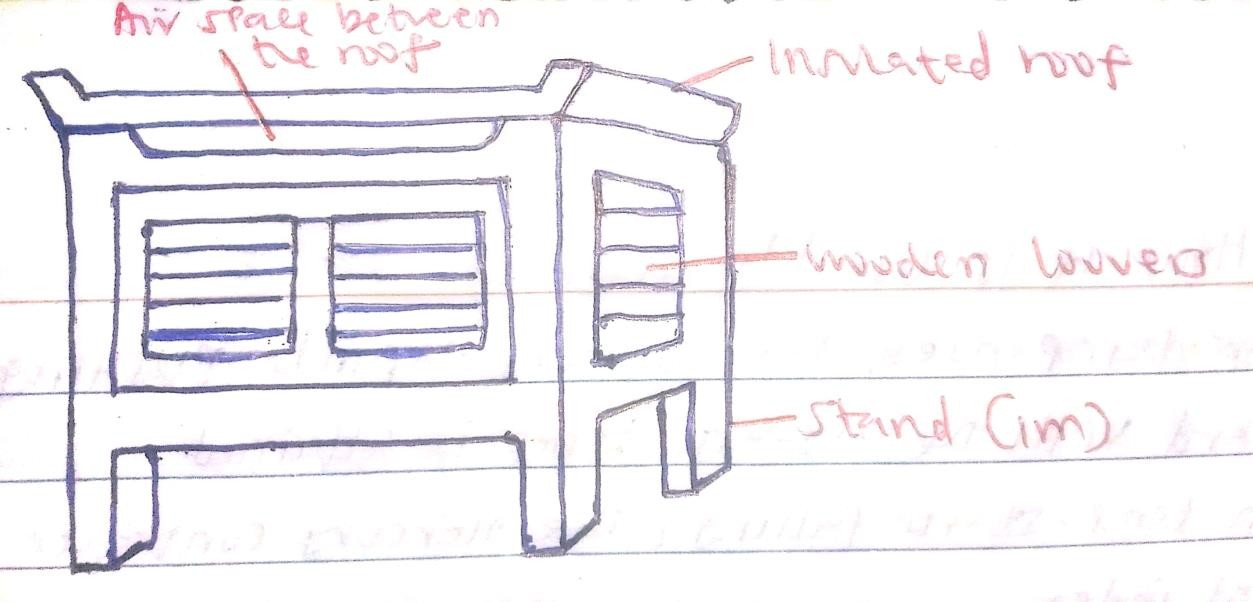 Air space between
the roof
Insulated roof
Wooden louvers
Stand (1m)